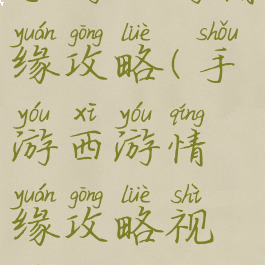 yuán gōng lüè shǒu
缘攻略(手
yóu xī yóu qíng
游西游情
yuán gōng lüè shì
缘攻略视